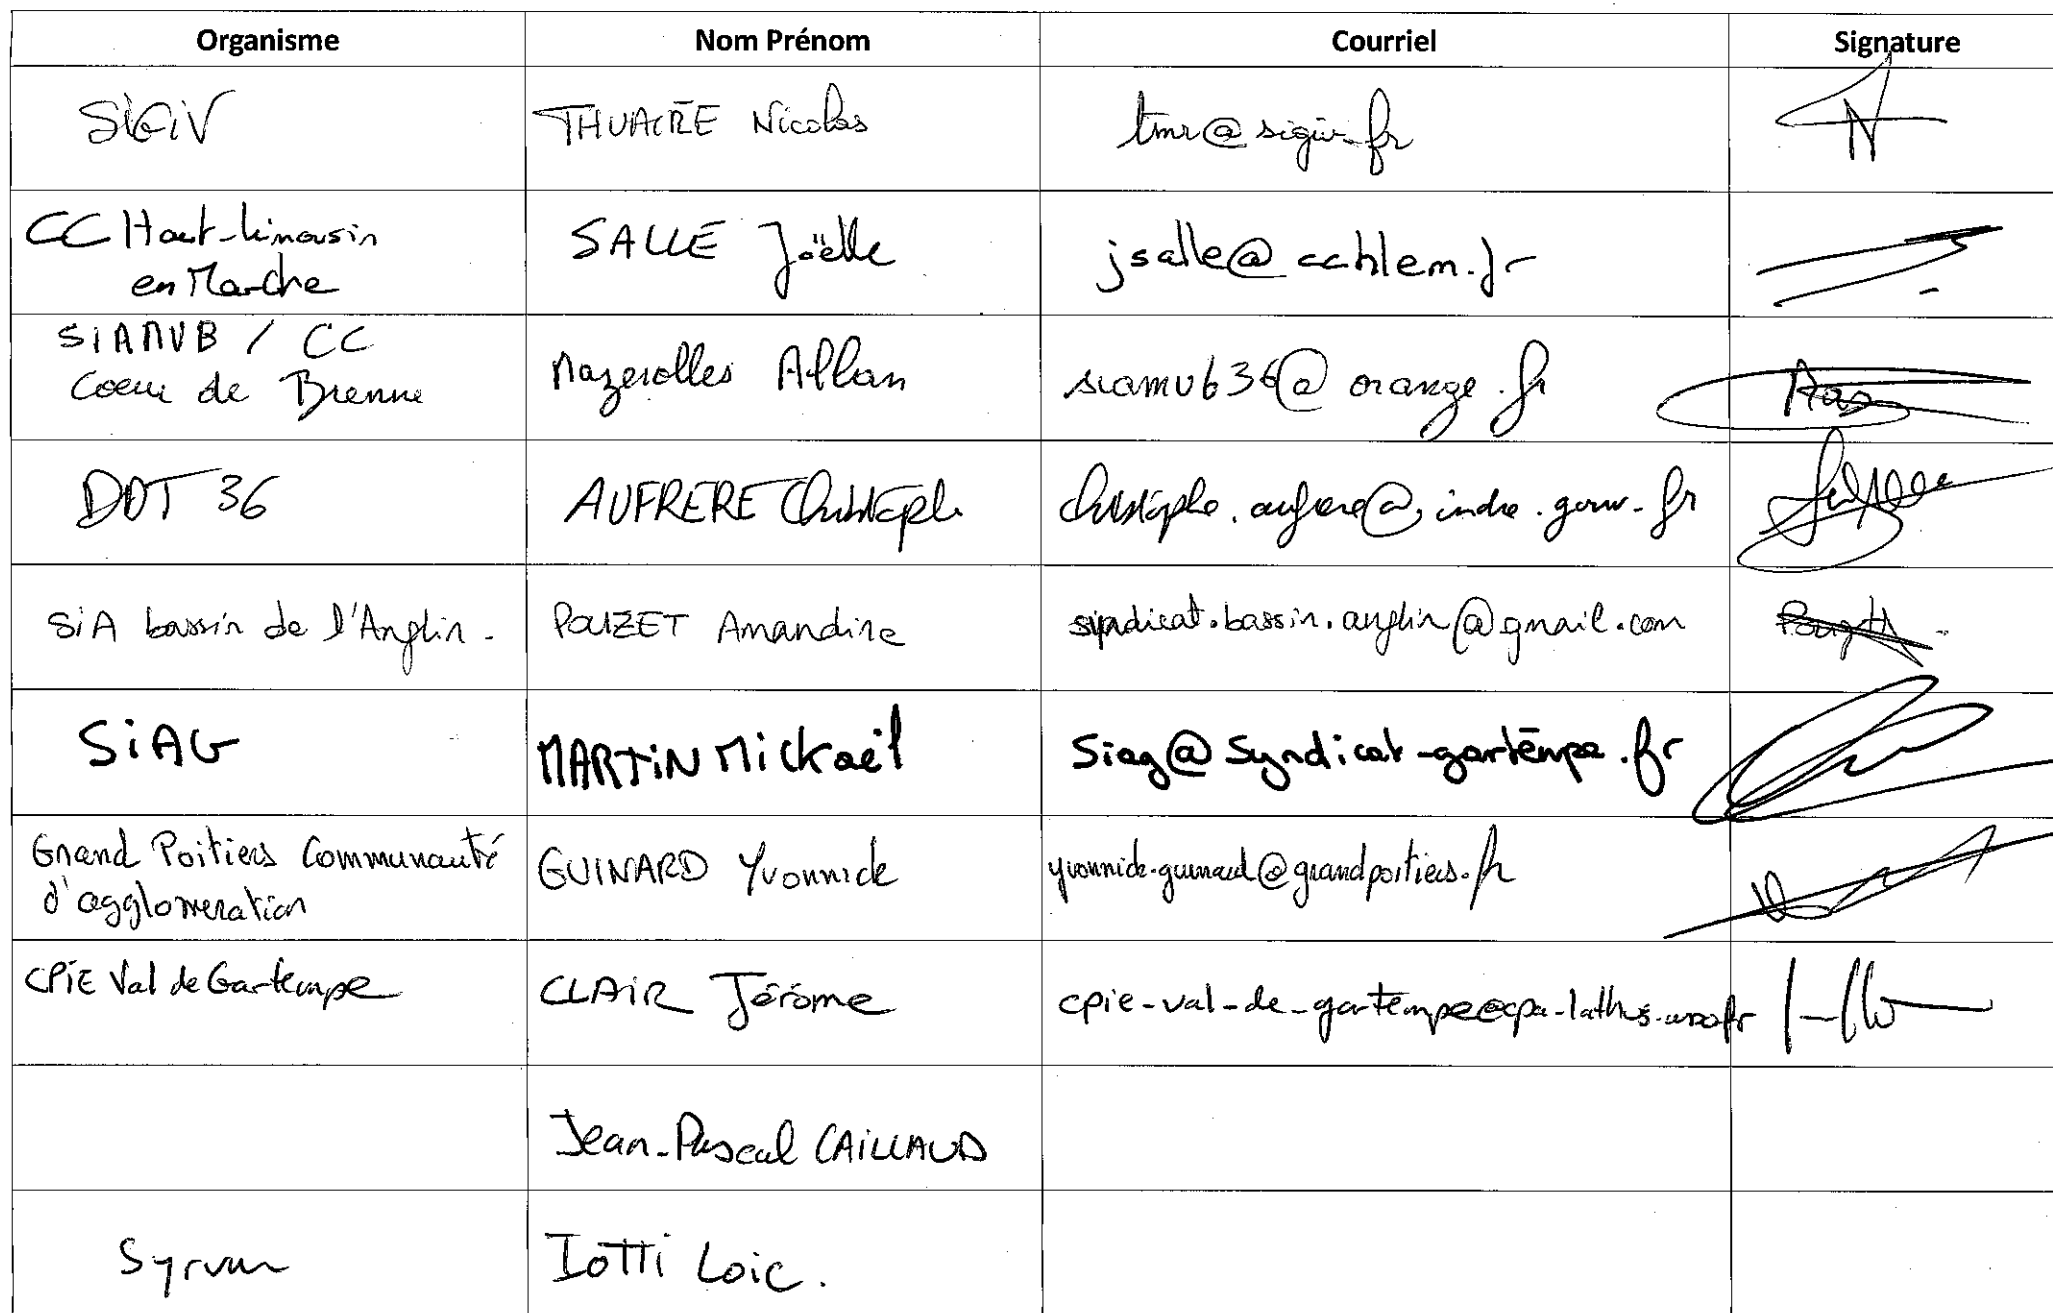 Organisme Nom Prénom Courriel Signature
SIGIV THUAIRE Nicolas tmr@sigiv.fr
CC Haut-Limousin
en Marche
SALLÉ Joëlle jsalle@cchlem.fr
SIAMVB / CC
Coeur de Brenne
Mazerolles Allan siamvb36@orange.fr
DDT 36 AUFRERE Christophe christophe.aufrere@indre.gouv.fr
SIA bassin de l'Anglin. POUZET Amandine syndicat.bassin.anglin@gmail.com
SIAG MARTIN Mickaël siag@syndicat-gartempe.fr
Grand Poitiers Communauté
d'agglomeration
GUINARD Yvonnick yvonnick.guinard@grandpoitiers.fr
CPIE Val de Gartempe CLAIR Jérôme cpie-val-de-gartempe@cpa-lathus.asso.fr
Jean-Pascal CAILLAUD
Syrvan IOTTI Loic.